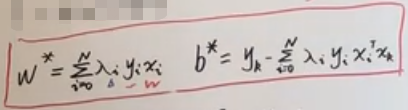 w* = \sum_{i=0}^{N} λ_i y_i x_i    b* = y_k - \sum_{i=0}^{N} λ_i y_i x_i^T x_k
Δ - w